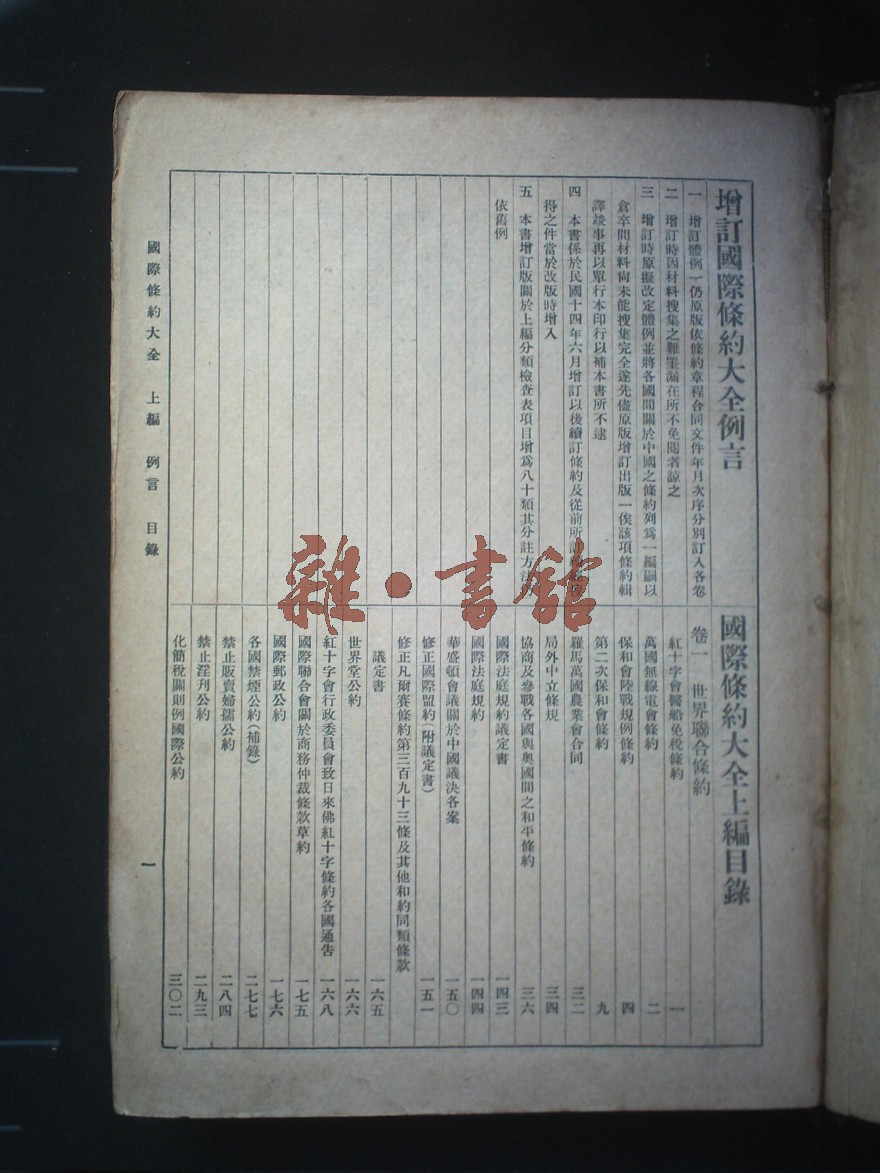 增訂國際條約大全例言
一 增訂體例一仍原版依條約章程合同文件年月次序分別訂入各卷
二 增訂時因材料搜集之難罣漏在所不免閱者諒之
三 增訂時原擬改定體例並將各國間關於中國之條約列爲一編嗣以
倉卒間材料尙未能搜集完全遂先儘原版增訂出版一俟該項條約輯
譯竣事再以單行本印行以補本書所不逮
四 本書係於民國十四年六月增訂以後續訂條約及從前所
得之件當於改版時增入
五 本書增訂版關於上編分類檢查表項目增爲八十類其分註方法
依舊例
國際條約大全上編目錄
卷一 世界聯合條約
紅十字會醫船免稅條約 一
萬國無線電會條約 二
保和會陸戰規例條約 四
第二次保和會條約 九
羅馬萬國農業會合同 三二
局外中立條規 三四
協商及參戰各國與奧國間之和平條約 三六
國際法庭規約議定書 一四三
國際法庭規約 一四四
華盛頓會議關於中國議決各案 一五〇
修正國際盟約(附議定書) 一五一
修正凡爾賽條約第三百九十三條及其他和約同類條款
議定書 一六五
世界堂公約 一六六
紅十字會行政委員會致日來佛紅十字條約各國通告 一六八
國際聯合會關於商務仲裁條款草約 一七五
國際郵政公約 一七六
各國禁煙公約(補錄) 二七七
禁止販賣婦孺公約 二八四
禁止淫刋公約 二九三
化簡稅關則例國際公約 三〇二
國際條約大全 上編 例言 目錄 一
雜·書館